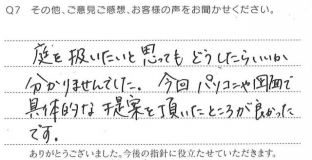 Q7 その他、ご意見ご感想、お客様の声をお聞かせください。
庭を扱いたいと思っても どうしたらいいか
分かりませんでした。今回 パソコンや図面で
具体的な提案を頂いたところが良かった
です。
ありがとうございました。今後の指針に役立たせていただきます。